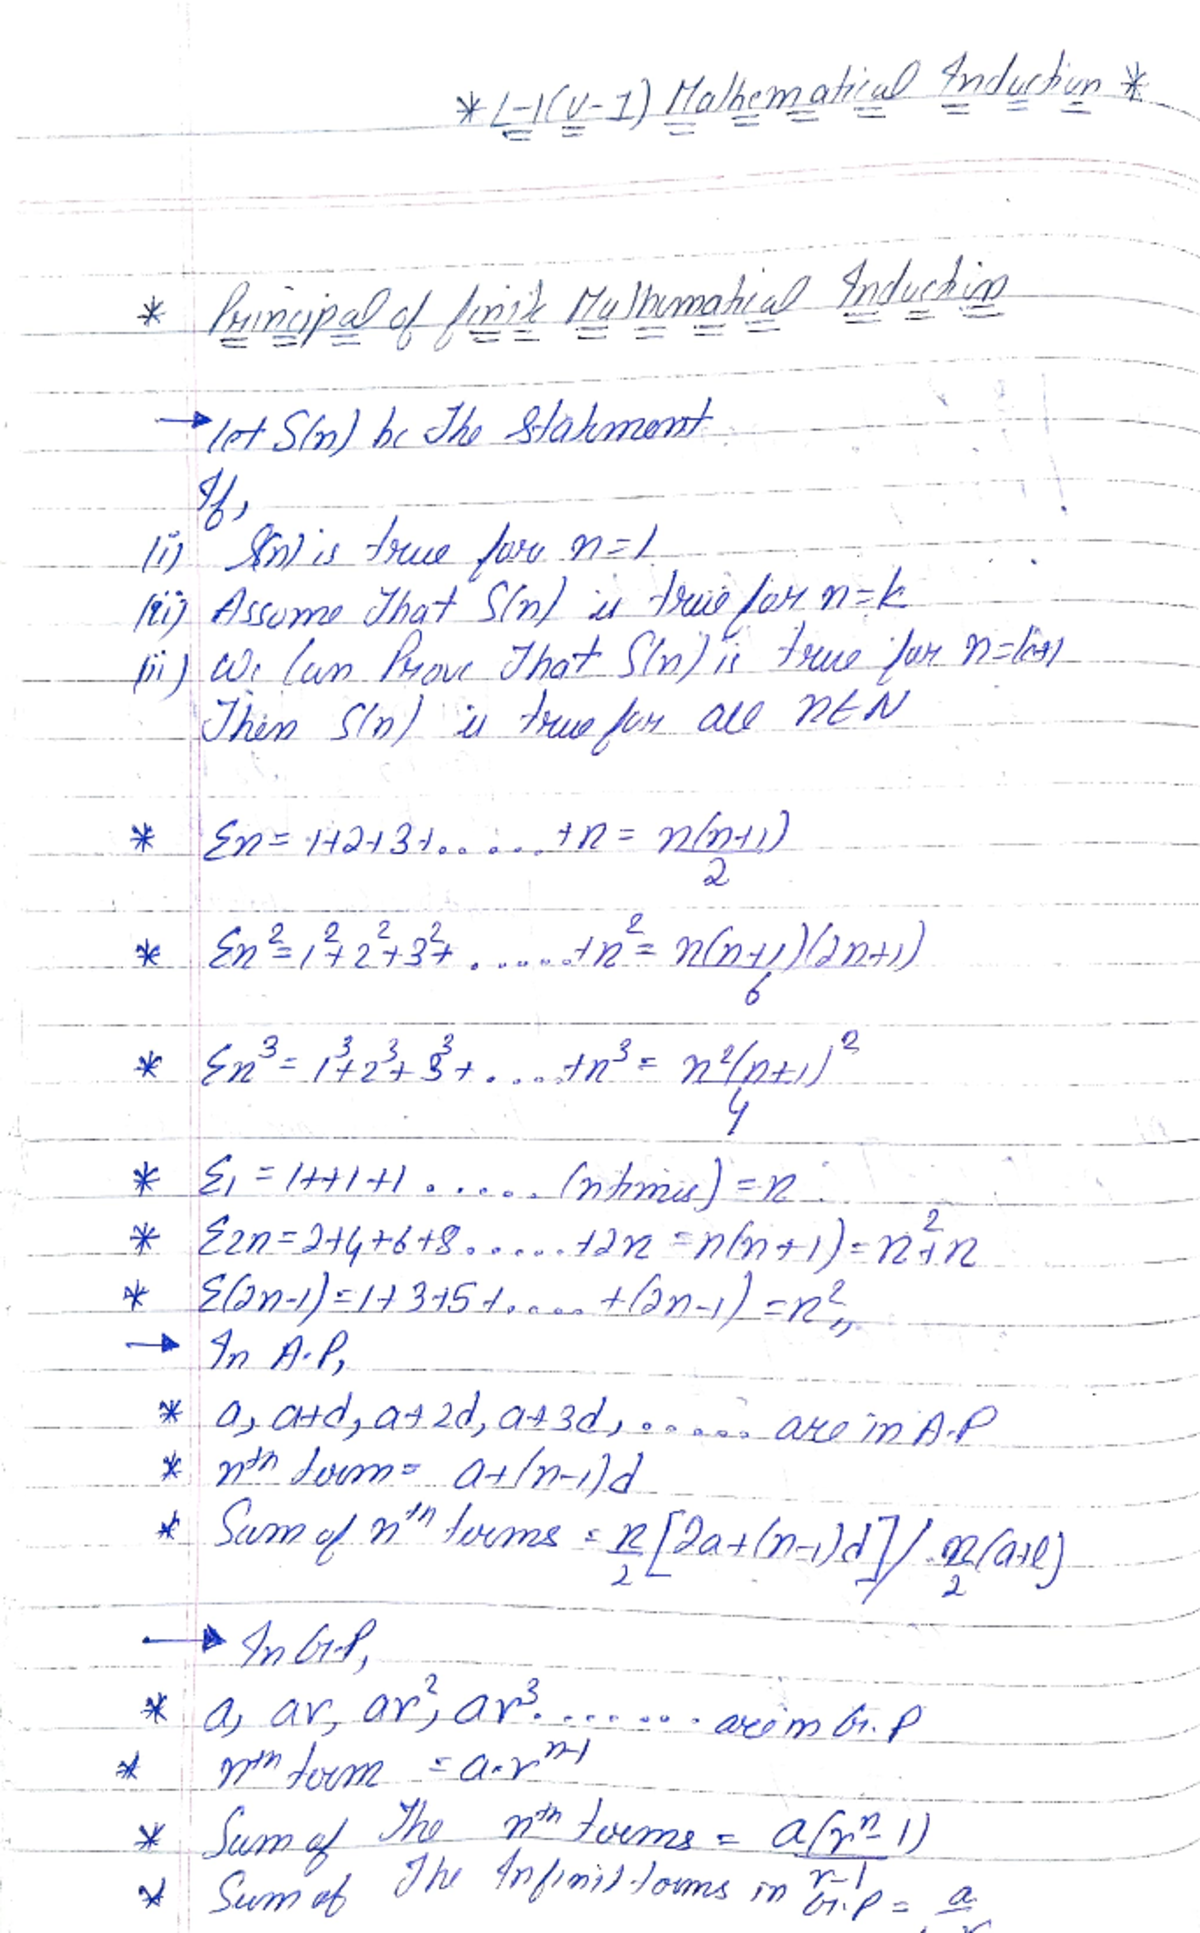 * L-1(U-1) Mathematical Induction *
* Principal of finite Mathematical Induction
→ let S(n) be The Statement
If,
(i) S(n) is true for n=1
(ii) Assume That S(n) is true for n=k
(ii) We Can Prove That S(n) is true for n=k+1
Then S(n) is true for all n∈N
* Σn = 1+2+3+.......+n = n(n+1)/2
* Σn² = 1²+2²+3²+.......+n² = n(n+1)(2n+1)/6
* Σn³ = 1³+2³+3³+.....+n³ = n²(n+1)²/4
* Σ1 = 1++1+1 ..... (n times) = n
* Σ2n = 2+4+6+8......+2n = n(n+1) = n²+n
* Σ(2n-1) = 1+3+5+..... +(2n-1) = n²,,
→ In A.P,
* a, a+d, a+2d, a+3d, ...... are in A.P
* nth term = a+(n-1)d
* Sum of nth terms = n/2 [2a+(n-1)d] / n/2 (a+l)
→ In G.P,
* a, ar, ar², ar³....... are in G.P
* nth term = a.r^n-1
* Sum of The nth terms = a(r^n-1)/r-1
* Sum of The Infinit terms in G.P = a